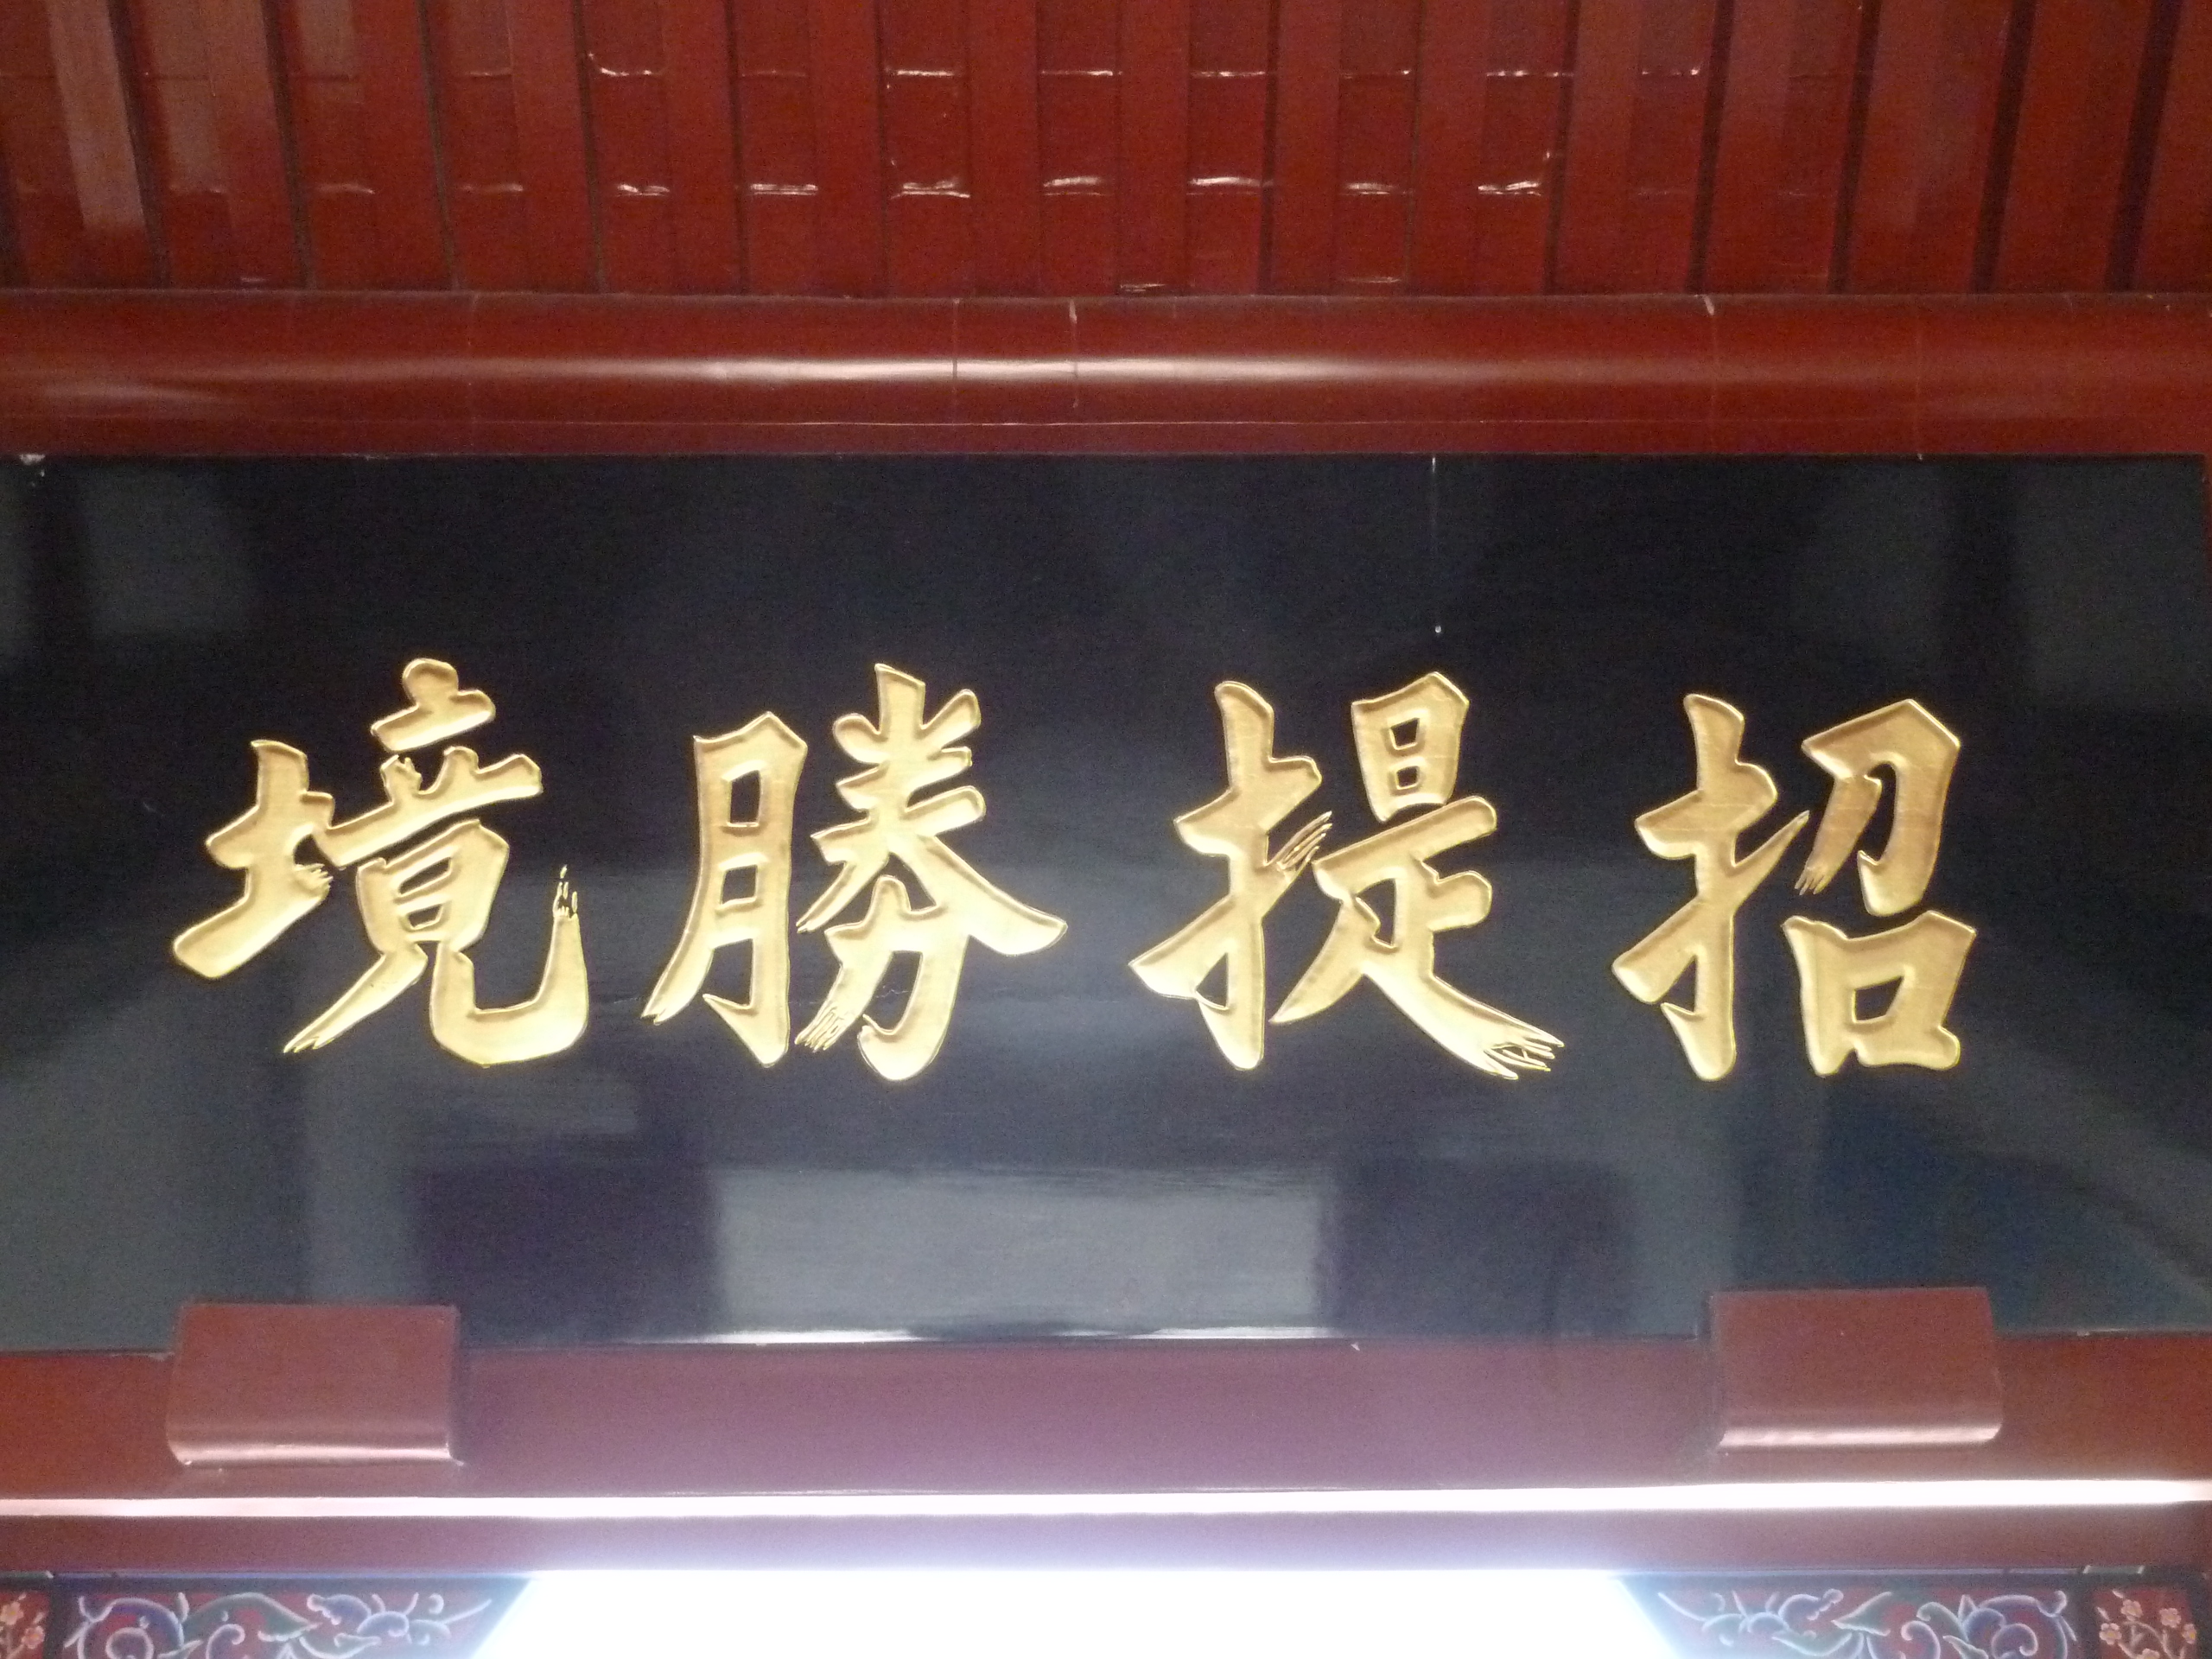 招提勝境